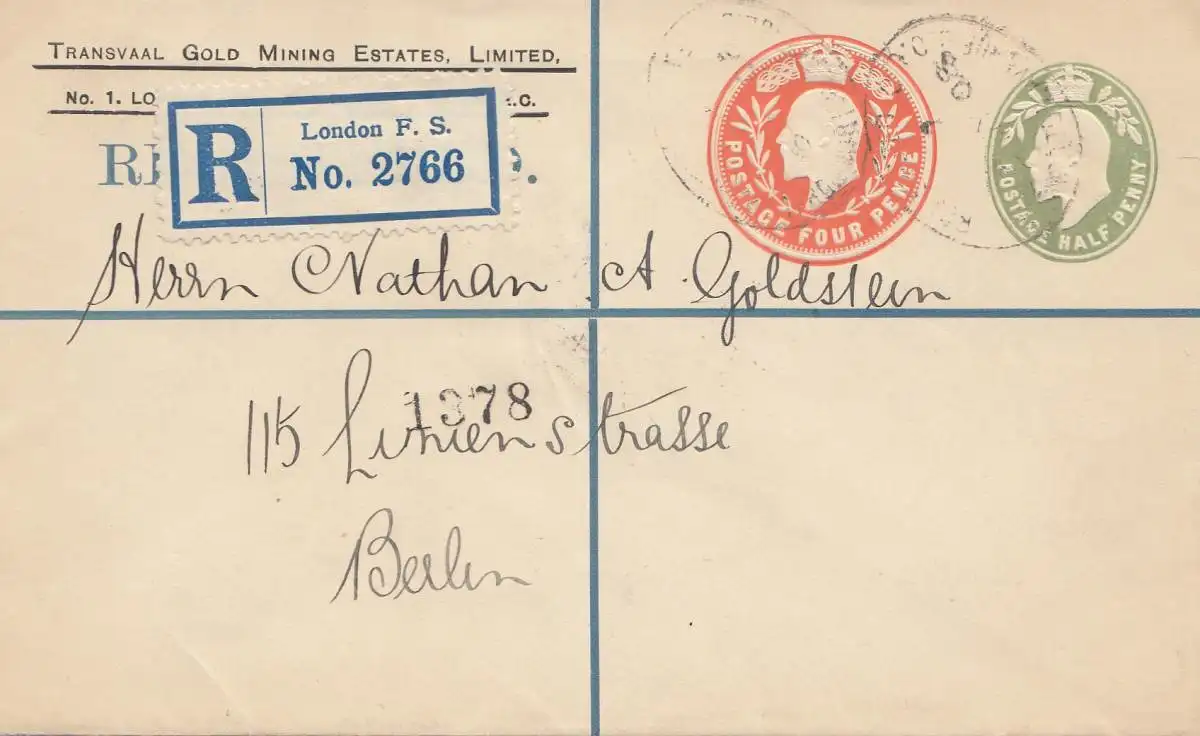 TRANSVAAL GOLD MINING ESTATES, LIMITED,
No. 1. LO .C.
R
London F. S.
No. 2766
POSTAGE FOUR PENCE
POSTAGE HALF PENNY
Herrn Nathan A. Goldstein
1378
115 Linienstrasse
Berlin